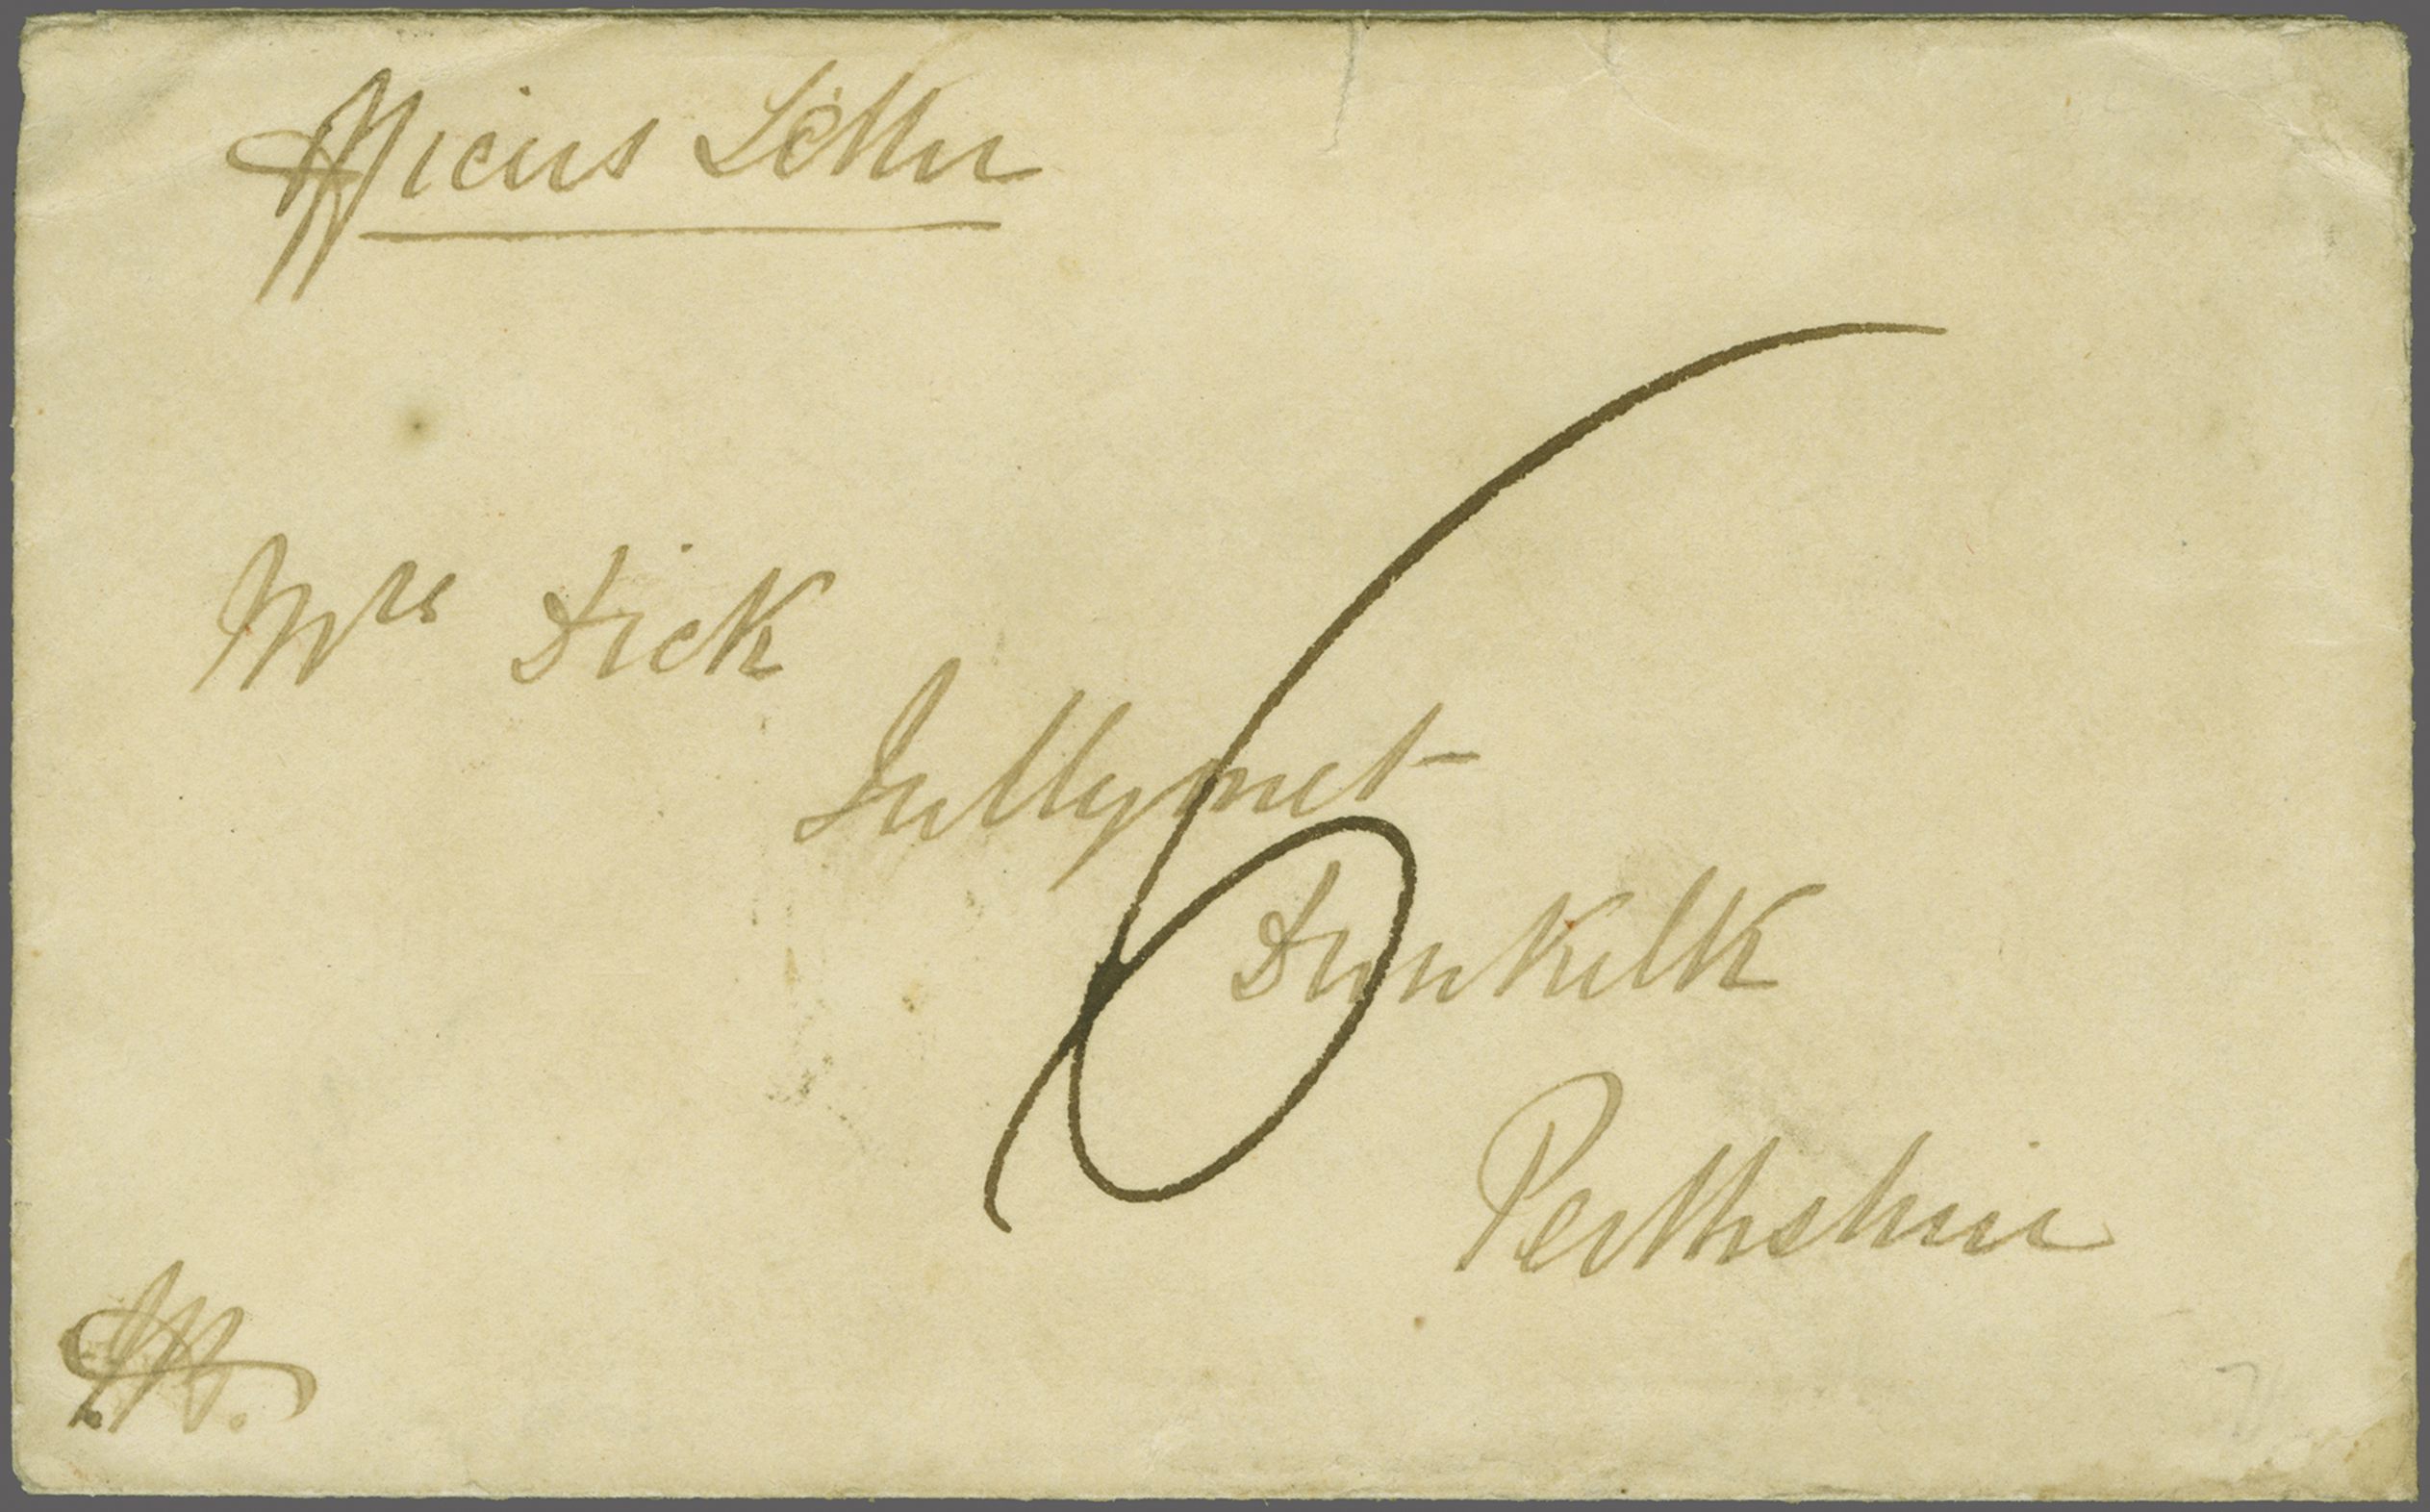 Officers Letter
Mrs Dick
Tullymet
6
Dunkelk
Perthshire